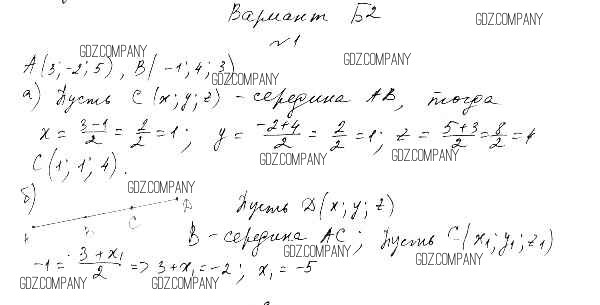 Вариант Б2
GDZ.COMPANY
№1
GDZ.COMPANY
A(3; -2; 5), B(-1; 4; 3)
GDZ.COMPANY
GDZ.COMPANY
а) Пусть C(x; y; z) - середина AB, тогда
x = \frac{3-1}{2} = \frac{2}{2} = 1; y = \frac{-2+4}{2} = \frac{2}{2} = 1; z = \frac{5+3}{2} = \frac{8}{2} = 4
GDZ.COMPANY
GDZ.COMPANY
C(1; 1; 4).
GDZ.COMPANY
б)
A B C D
Пусть D(x; y; z)
B - середина AC; Пусть C(x₁; y₁; z₁)
GDZ.COMPANY
GDZ.COMPANY
-1 = \frac{3+x₁}{2} => 3+x₁ = -2; x₁ = -5
GDZ.COMPANY
GDZ.COMPANY